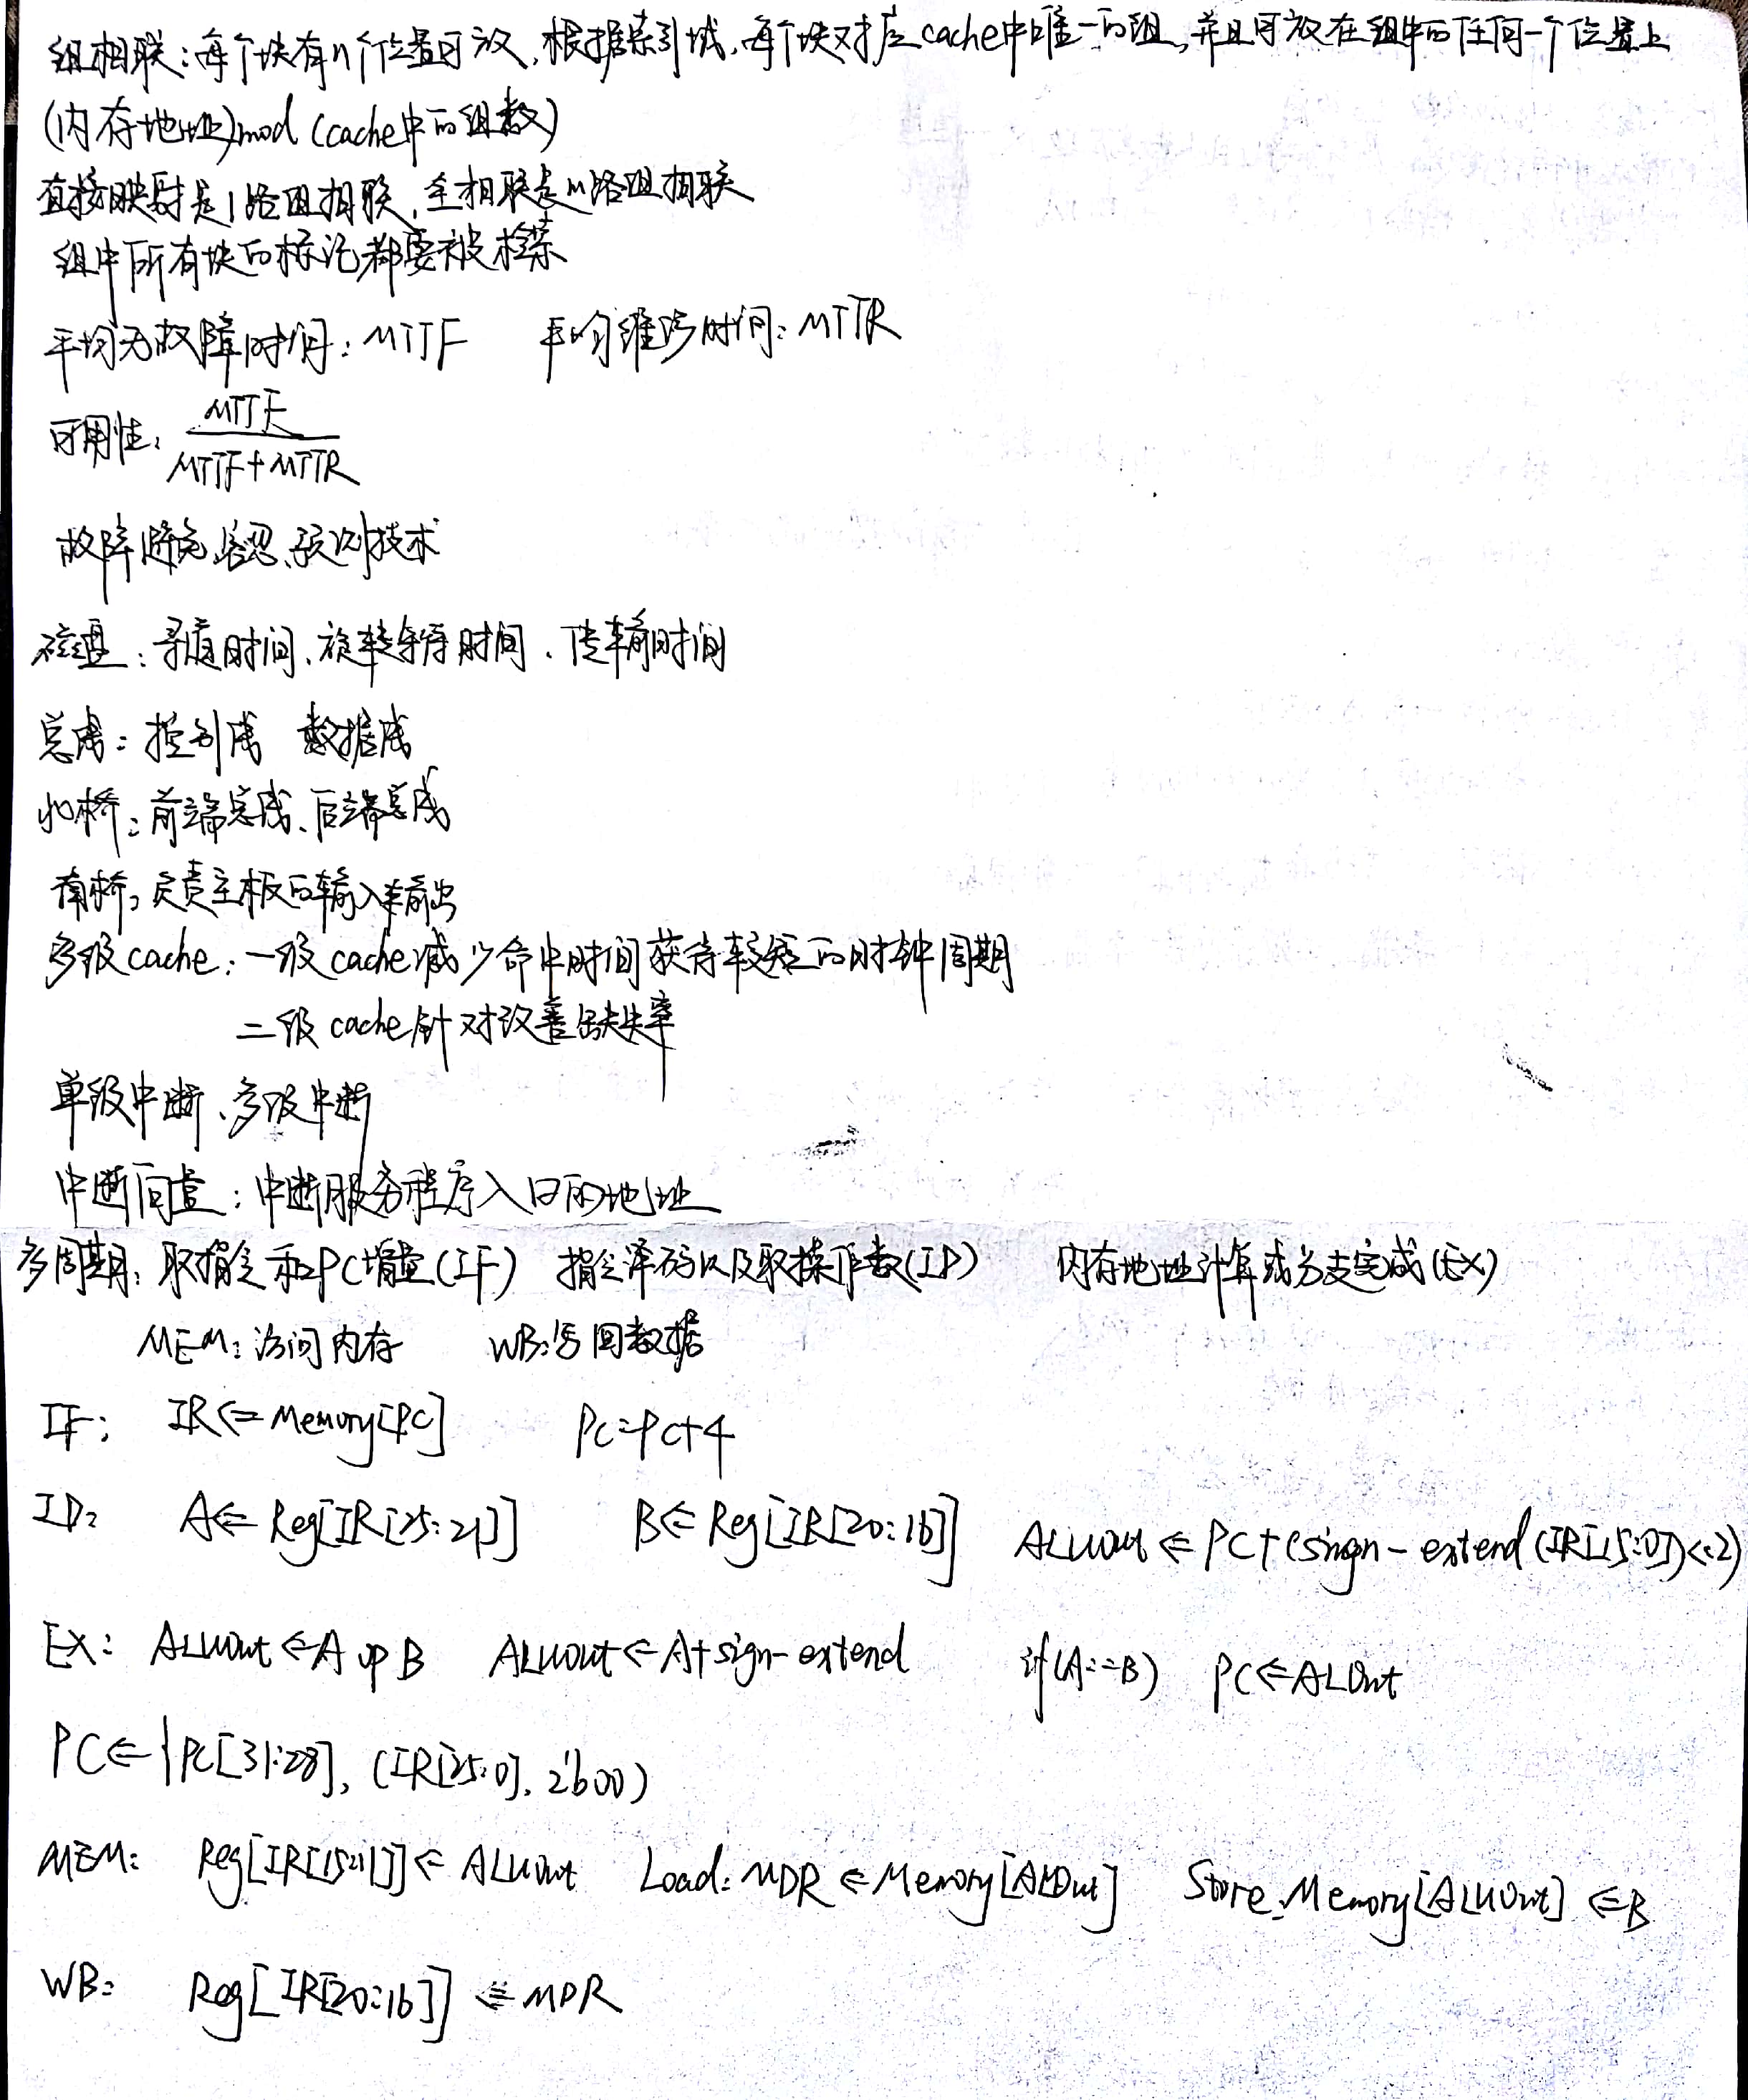 组相联：每个块有n个位置可放，根据索引域，每个块对应cache中唯一的组，并且可放在组中的任何一个位置上
(内存地址)mod (cache中的组数)
直接映射是1路组相联，全相联是m路组相联
组中所有块的标记都要被检索
平均无故障时间：MTTF 平均维修时间：MTTR
可用性：MTTF / MTTF+MTTR
故障避免、容忍、预测技术
磁盘：寻道时间、旋转等待时间、传输时间
总线：控制线 数据线
北桥：前端总线、后端总线
南桥：负责主板的输入输出
多级cache：一级cache减少命中时间获得较短的时钟周期
二级cache针对改善缺失率
单级中断、多级中断
中断向量：中断服务程序入口的地址
多周期：取指令和PC增量(IF) 指令译码以及取操作数(ID) 内存地址计算或分支完成(EX)
MEM：访问内存 WB：写回数据
IF： IR<=Memory[PC] PC=PC+4
ID： A<=Reg[IR[25:21]] B<=Reg[IR[20:16]] ALUOut<=PC+(singn-extend(IR[15:0])<<2)
EX： ALUOut<=A op B ALUOut<=A+sign-extend if(A==B) PC<=ALOut
PC<={PC[31:28],(IR[25:0],2'b00)
MEM： Reg[IR[15:11]]<=ALUOut Load：MDR<=Memory[ALOut] Store：Memory[ALUOut]<=B
WB： Reg[IR[20:16]]<=MDR